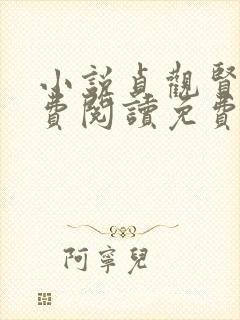 小說貞觀賢
費閱讀免費
阿寧兒